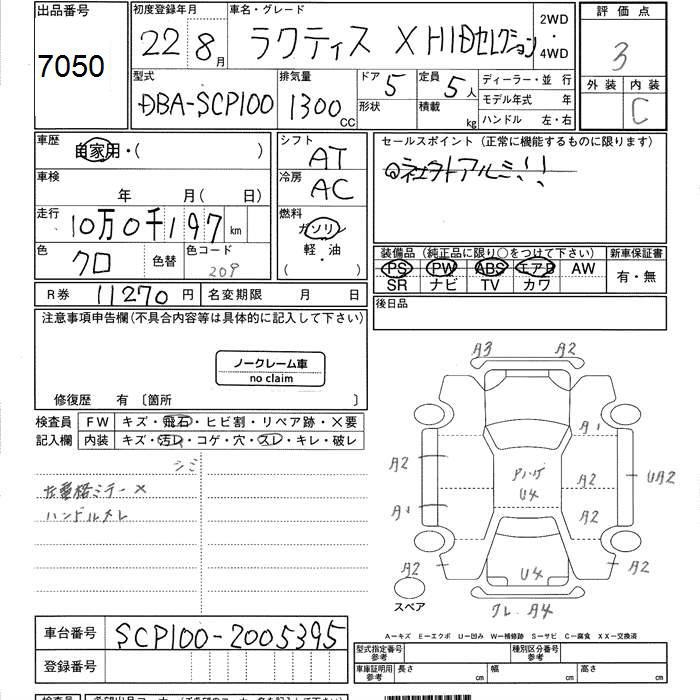 出品番号
7050
初度登録年月
22 8月
車名・グレード
ラクティス X HIDセレクション
2WD
・
4WD
評価点
3
外装 内装
C
型式
DBA-SCP100
排気量
1300 CC
ドア 5
形状
定員 5人
積載 kg
ディーラー・並 行
モデル年式 年
ハンドル 左・右
車歴
自家用・( )
車検
年 月( 日)
走行
10万0千197 km
色
クロ
色替
色コード
209
シフト
AT
冷房
AC
燃料
ガソリン
軽・油
( )
セールスポイント(正常に機能するものに限ります)
装備品(純正品に限り○をつけて下さい)
PS PW ABS エアB AW
SR ナビ TV カワ
新車保証書
有・無
R券 11270円
名変期限 月 日
後日品
注意事項申告欄(不具合内容等は具体的に記入して下さい)
ノークレーム車
no claim
修復歴 有 〔箇所 〕
検査員
記入欄
FW キズ・飛石・ヒビ割・リペア跡・×要
内装 キズ・汚レ・コゲ・穴・スレ・キレ・破レ
シミ
ハンドルスレ
A3 A2
A1
A2 A2 UA2
Pハゲ
U4
A1 A2
A2 U4 A2
スペア
ワレ A4
A-キズ E-エクボ U-凹み W-補修跡 S-サビ C-腐食 XX-交換済
車台番号 SCP100-2005395
登録番号
型式指定番号
参考
種別区分番号
参考
車庫証明用
参考
長さ cm
幅 cm
高さ cm